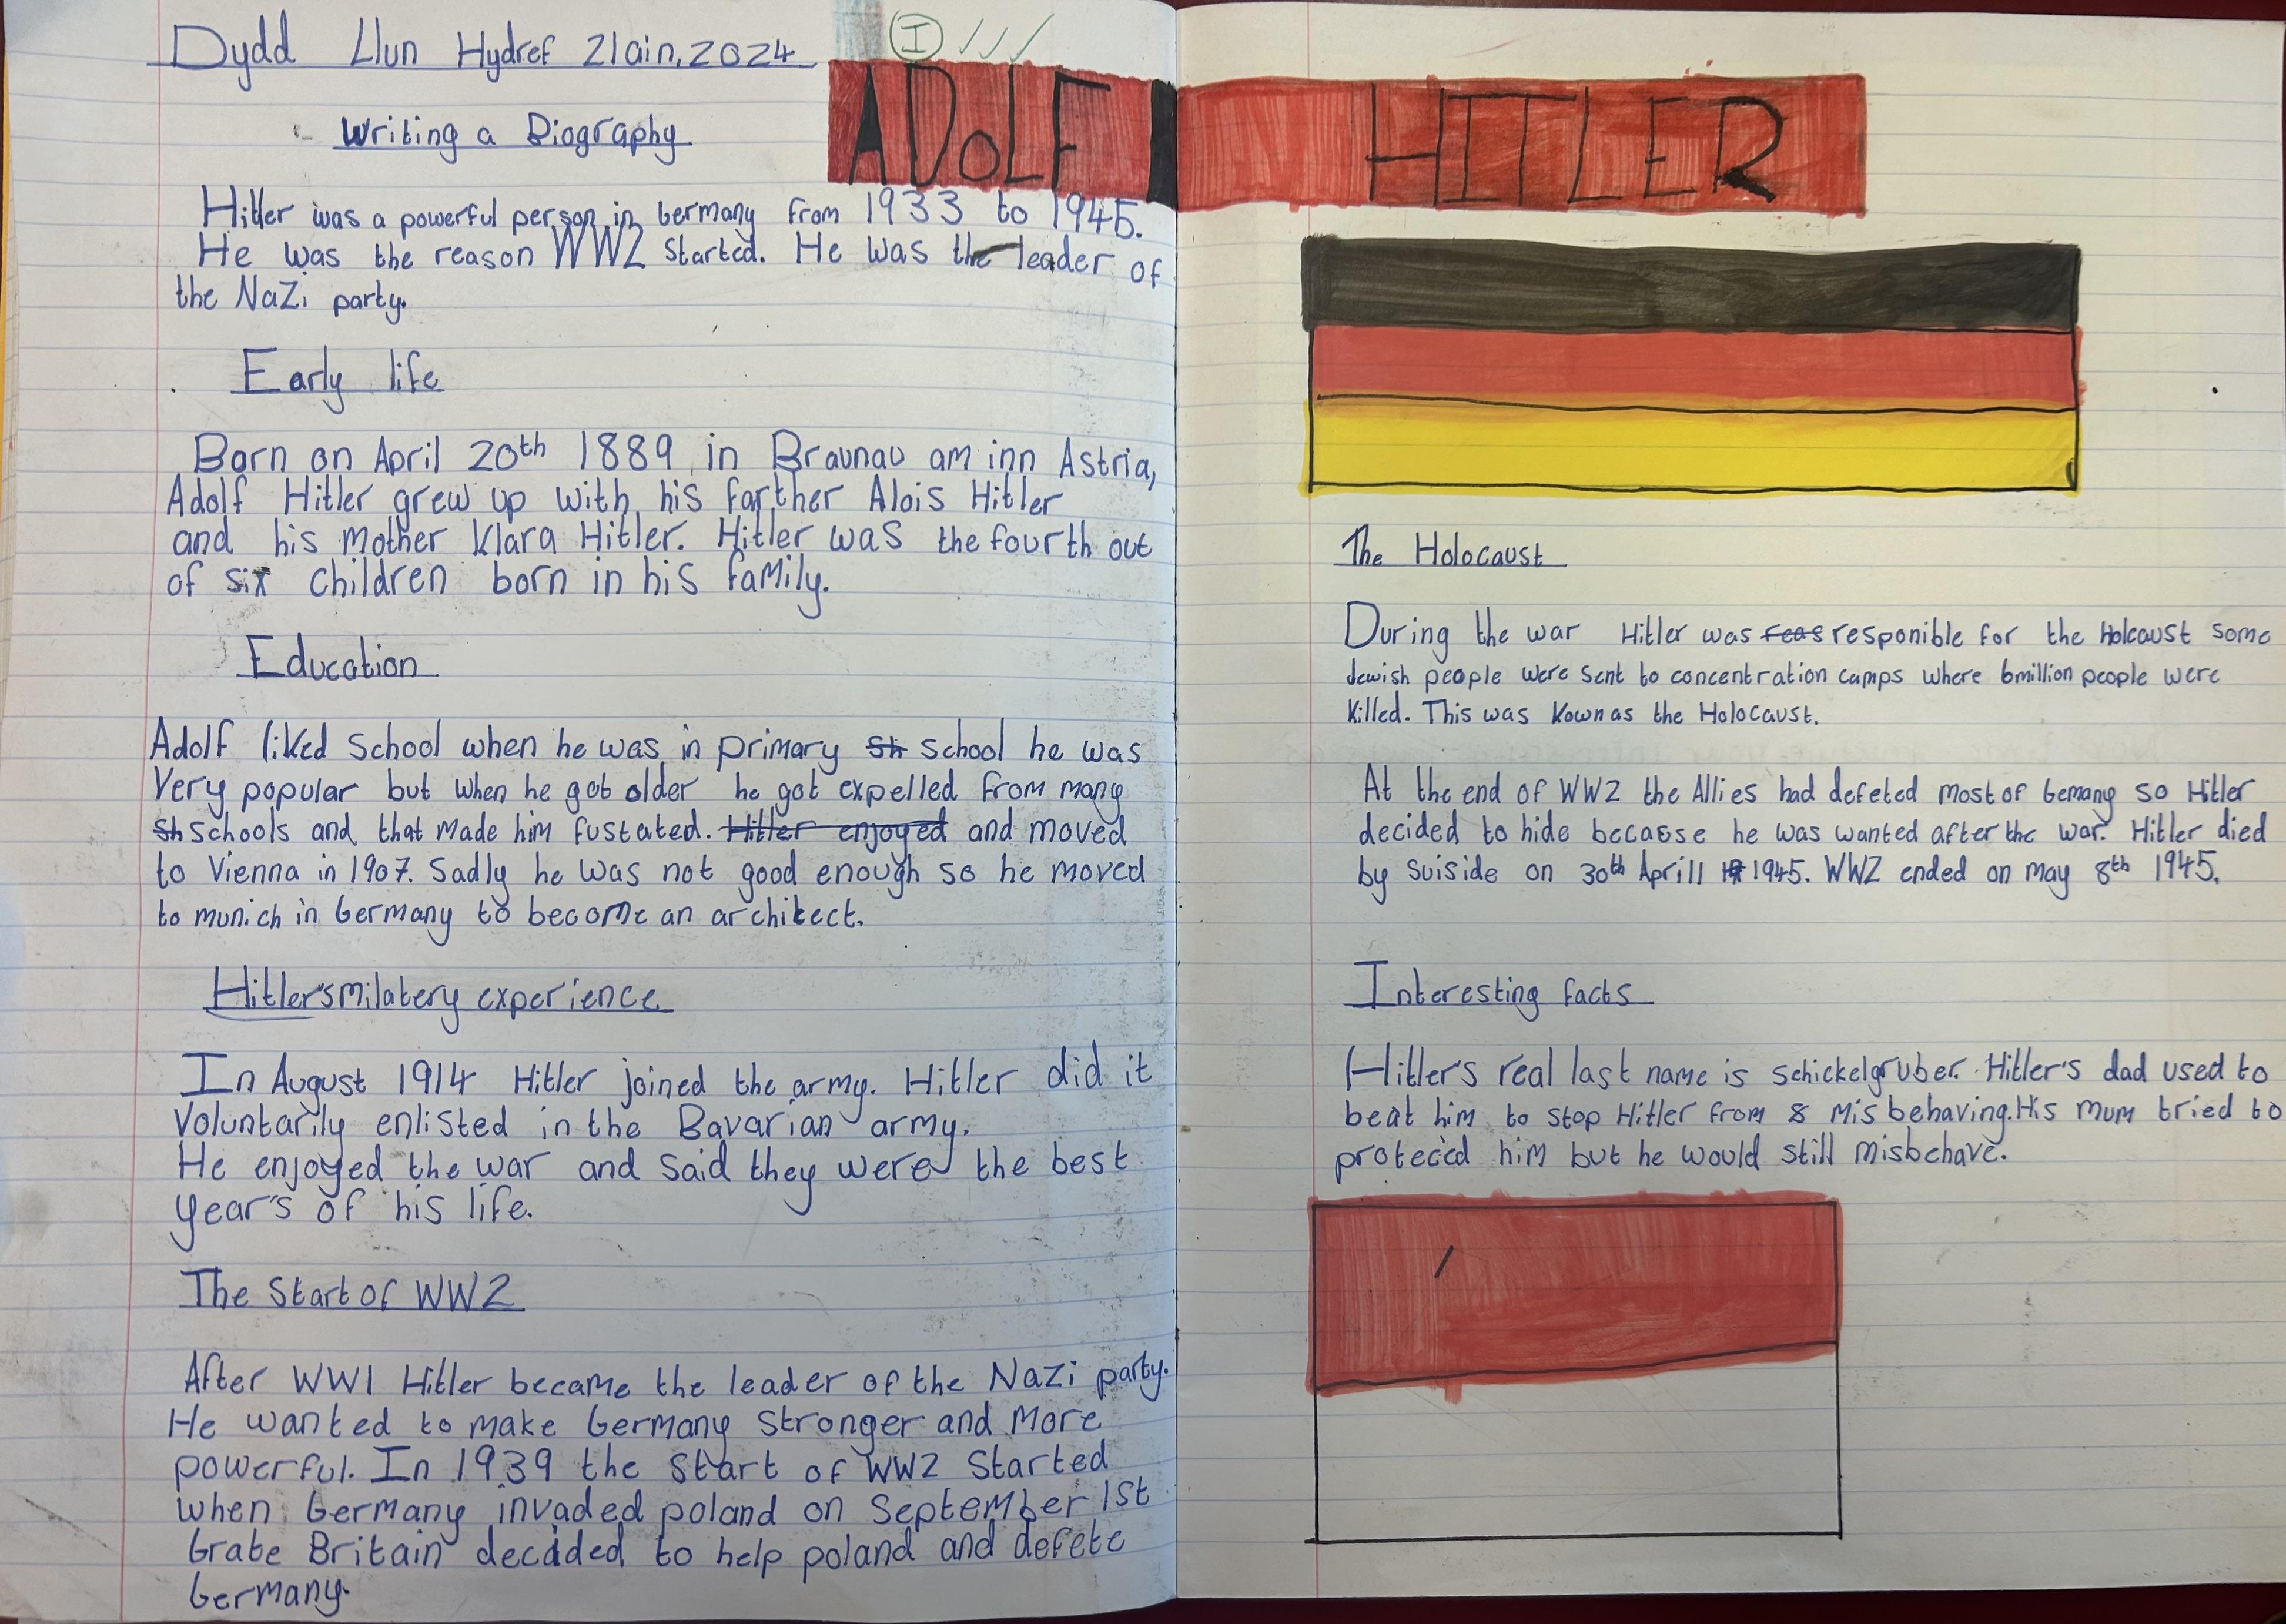 Dydd Llun Hydref 21ain, 2024
I
Writing a Biography
ADOLF HITLER
Hitler was a powerful person in Germany from 1933 to 1945.
He was the reason WW2 started. He was the leader of
the Nazi party.
Early life
Born on April 20th 1889 in Braunau am inn Astria,
Adolf Hitler grew up with his farther Alois Hitler
and his mother Klara Hitler. Hitler was the fourth out
of six children born in his family.
Education
Adolf liked school when he was in primary sh school he was
very popular but when he got older he got expelled from many
sh schools and that made him fustated. Hitler enjoyed and moved
to Vienna in 1907. Sadly he was not good enough so he moved
to munich in Germany to become an architect.
Hitler's milatery experience
In August 1914 Hitler joined the army. Hitler did it
Voluntarily enlisted in the Bavarian army.
He enjoyed the war and said they were the best
year's of his life.
The Start of WW2
After WW1 Hitler became the leader of the Nazi party.
He wanted to make Germany stronger and more
powerful. In 1939 the start of WW2 started
when Germany invaded poland on September 1st
Grate Britain decided to help poland and defete
Germany.
The Holocaust
During the war Hitler was responible for the Holcaust some
Jewish people were sent to concentration camps where 6million people were
killed. This was kown as the Holocaust.
At the end of WW2 the Allies had defeted most of Gemany so Hitler
decided to hide becaose he was wanted after the war. Hitler died
by suiside on 30th Aprill 1945. WW2 ended on may 8th 1945.
Interesting facts
Hitler's real last name is schickelgruber. Hitler's dad used to
beat him to stop Hitler from misbehaving. His mum tried to
proteced him but he would still misbehave.